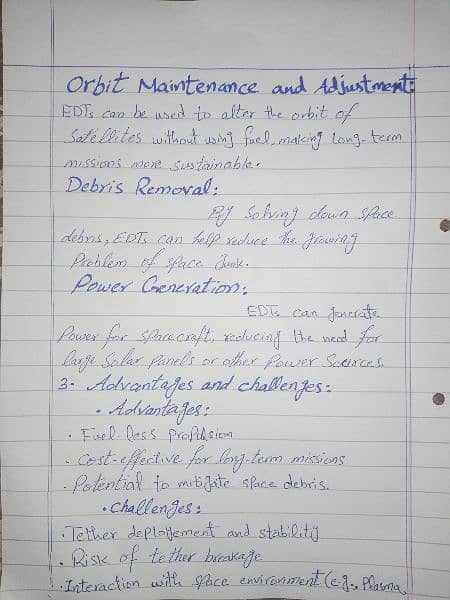 Orbit Maintenance and Adjustment:
EDTs can be used to alter the orbit of
Satellites without using fuel, making long-term
missions more sustainable.
Debris Removal:
By Solving down space
debris, EDTs can help reduce the growing
Problem of space Junk.
Power Generation:
EDTs can generate
Power for spacecraft, reducing the need for
large Solar Panels or other Power Sources.
3- Advantages and challenges:
• Advantages:
· Fuel-less propulsion
· Cost-effective for long-term missions
· Potential to mitigate space debris.
• Challenges:
· Tether deployement and stability
· Risk of tether breakage
· Interaction with space environment (e.g., Plasma,